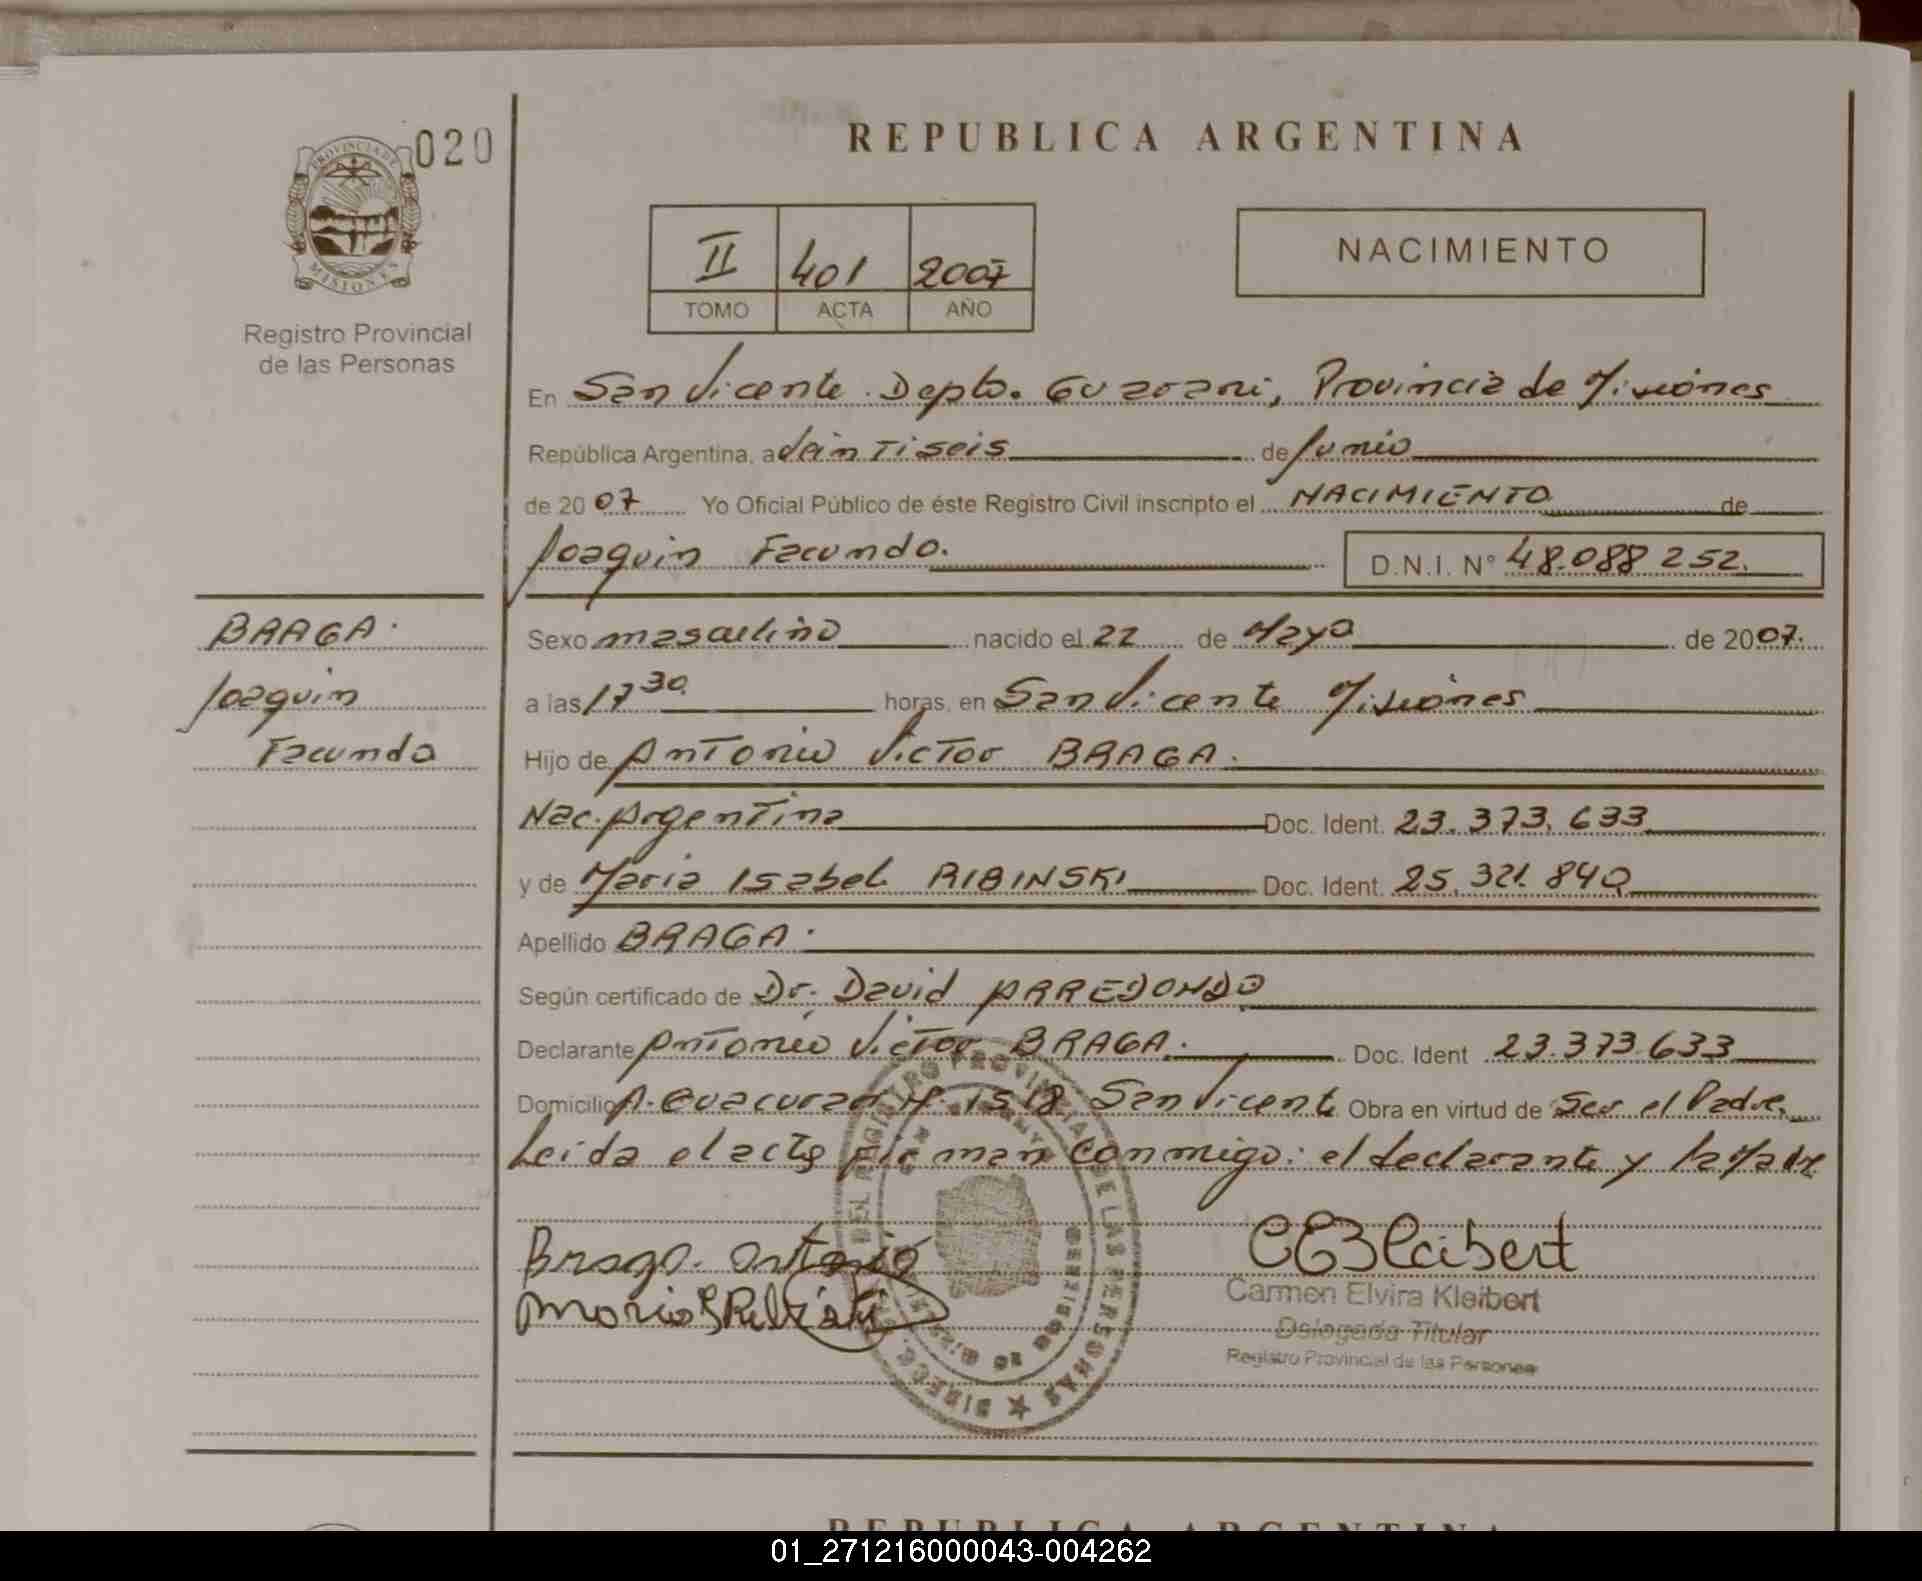 020
PROVINCIA DE
MISIONES
Registro Provincial
de las Personas
REPUBLICA ARGENTINA
II 401 2007
TOMO ACTA AÑO
NACIMIENTO
En San Vicente. Depto. Guarani, Provincia de Misiones
República Argentina, a Veintiseis de Junio
de 2007 Yo Oficial Público de éste Registro Civil inscripto el NACIMIENTO de
Joaquin Facundo.
D.N.I. N° 48.088 252.
BRAGA.
Joaquin
Facundo
Sexo masculino nacido el 22 de Mayo de 2007.
a las 17 30 horas, en San Vicente Misiones
Hijo de Antonio Victor BRAGA.
Nac. Argentina Doc. Ident. 23.373.633
y de Maria Isabel RIBINSKI Doc. Ident. 25.321.840
Apellido BRAGA.
Según certificado de Dr. David ARREDONDO
Declarante Antonio Victor BRAGA. Doc. Ident 23.373.633
Domicilio A. Guacurari N° 1518 San Vicente Obra en virtud de Ser el Padre.
Leida el acta firman conmigo: el declarante y la Madre
Braga. Antonio
CEKleibert
Carmen Elvira Kleibert
Delegada Titular
Registro Provincial de las Personas
DIRECC. DEL REGISTRO PROVINCIAL DE LAS PERSONAS
REPUBLICA ARGENTINA
01_271216000043-004262